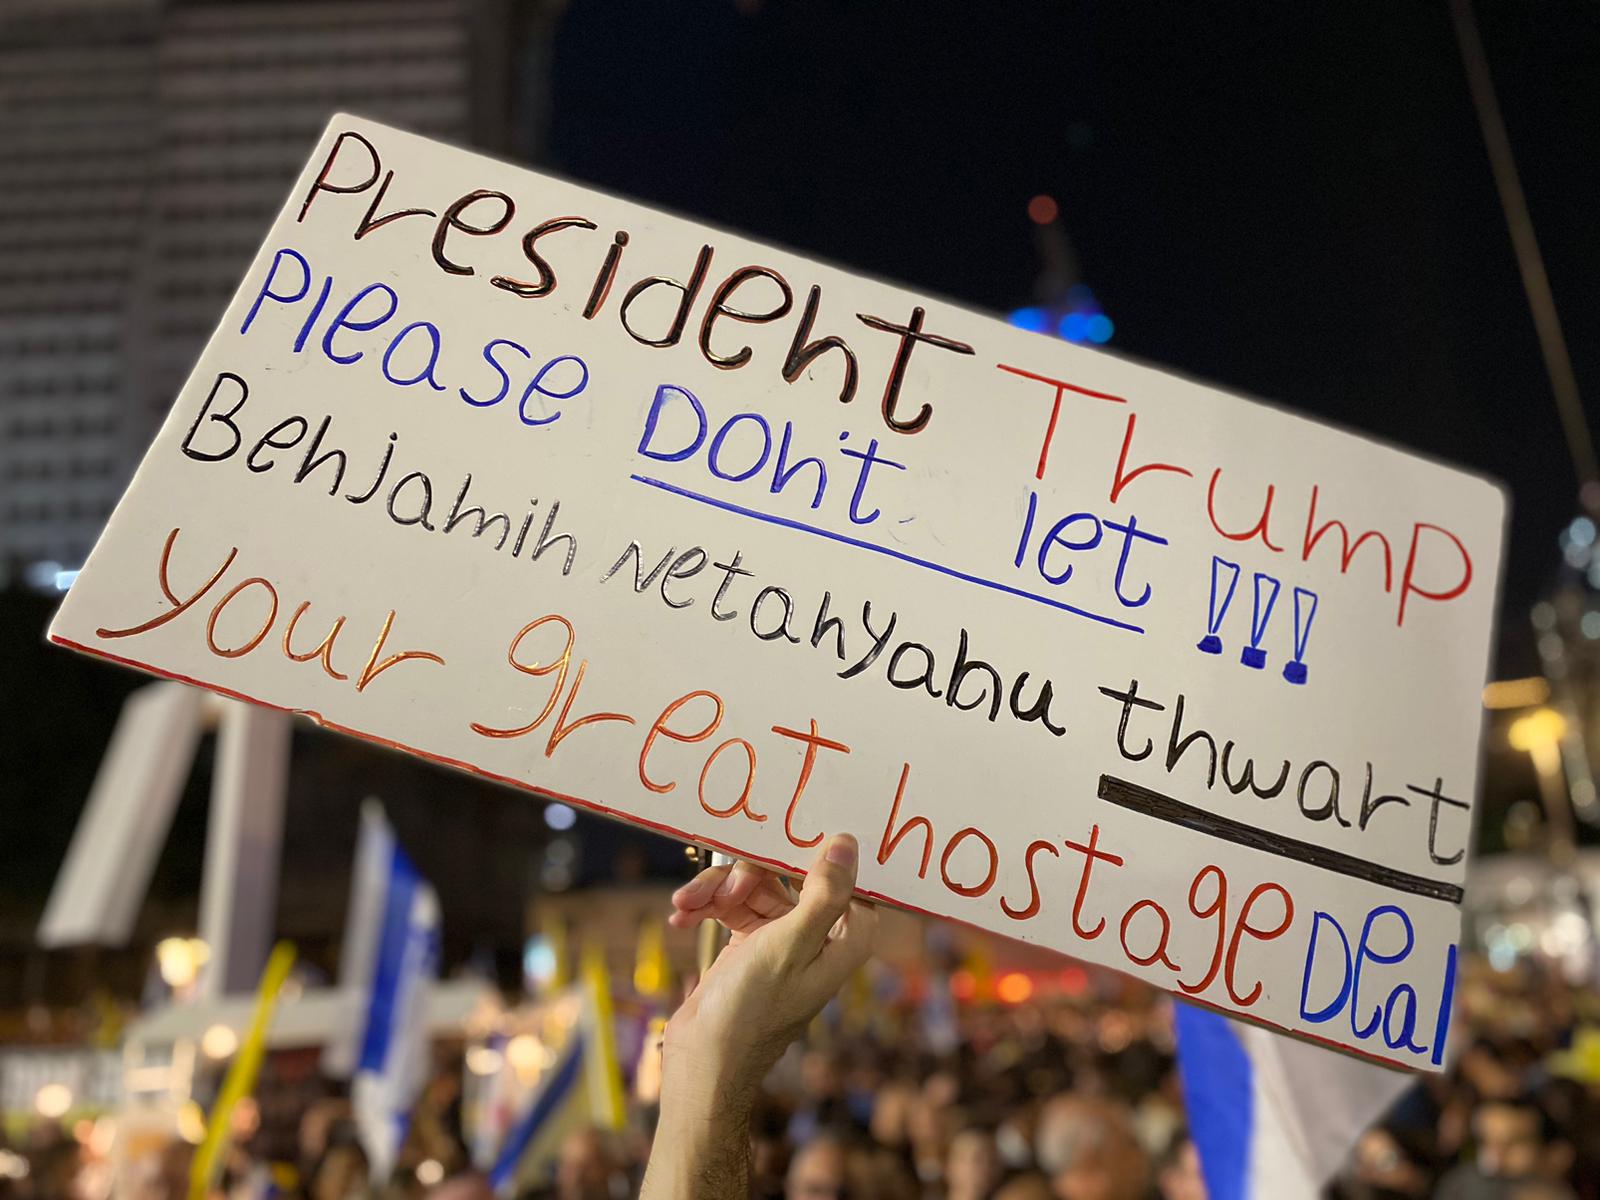 President Trump
Please DON'T let !!!
Benjamin Netanyabu thwart
your great hostage Deal